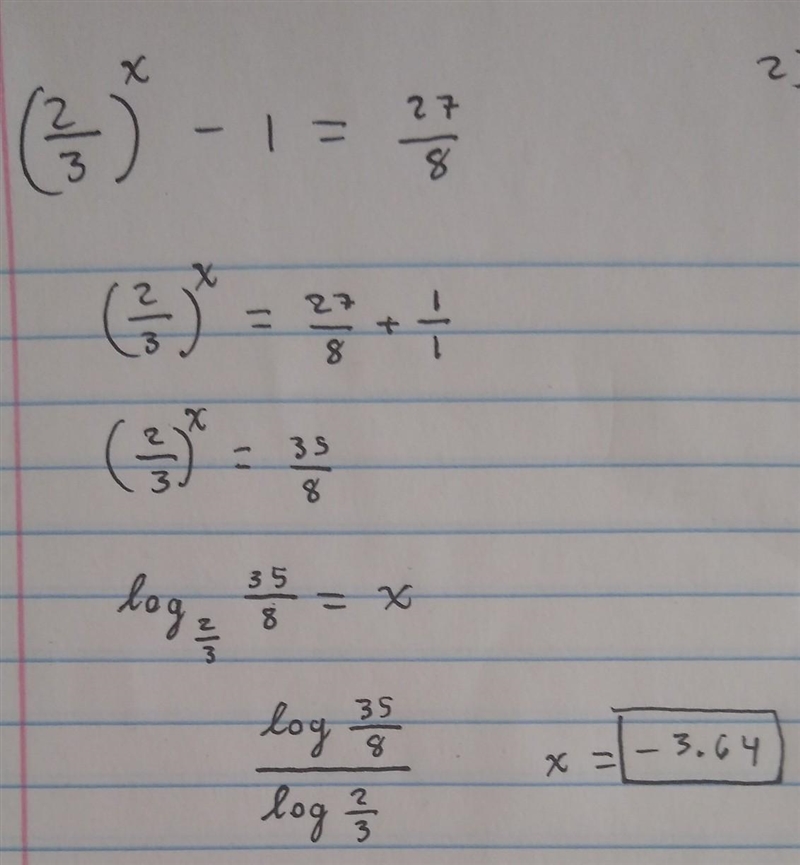 (2/3)^x - 1 = 27/8
(2/3)^x = 27/8 + 1/1
(2/3)^x = 35/8
log_{2/3} 35/8 = x
log 35/8 / log 2/3
x = -3.64